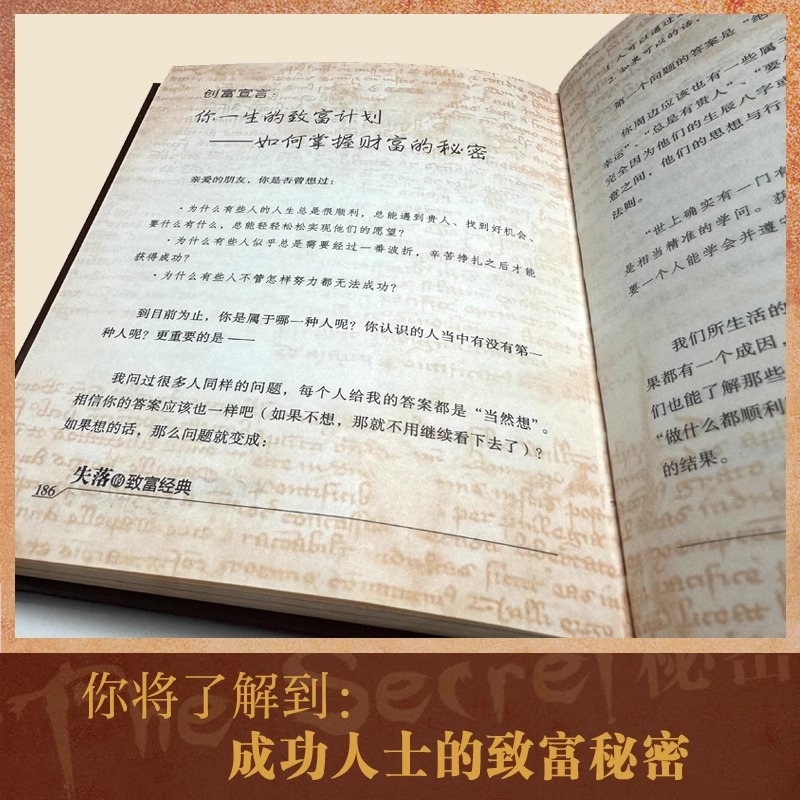 创富宣言：
你一生的致富计划
——如何掌握财富的秘密
亲爱的朋友，你是否曾想过：
·为什么有些人的人生总是很顺利，总能遇到贵人、找到好机会、
要什么有什么，总能轻轻松松实现他们的愿望？
·为什么有些人似乎总是需要经过一番波折，辛苦挣扎之后才能
获得成功？
·为什么有些人不管怎样努力都无法成功？
到目前为止，你是属于哪一种人呢？你认识的人当中有没有第一
种人呢？更重要的是——
我问过很多人同样的问题，每个人给我的答案都是“当然想”。
相信你的答案应该也一样吧（如果不想，那就不用继续看下去了）？
如果想的话，那么问题就变成：
186 失落的致富经典
1.人可以通过
2.如果可以的话，
第一个问题的答案是“绝
你周边应该也有一些属于
幸运”、“总是有贵人”、“要
完全因为他们的生辰八字或
意之间，他们的思想与行
法则。
“世上确实有一门
是相当精准的学问。获
要一个人能学会并遵守
我们所生活的
果都有一个成因，
们也能了解那些
“做什么都顺利
的结果。
The Secret 秘密
你将了解到：
成功人士的致富秘密